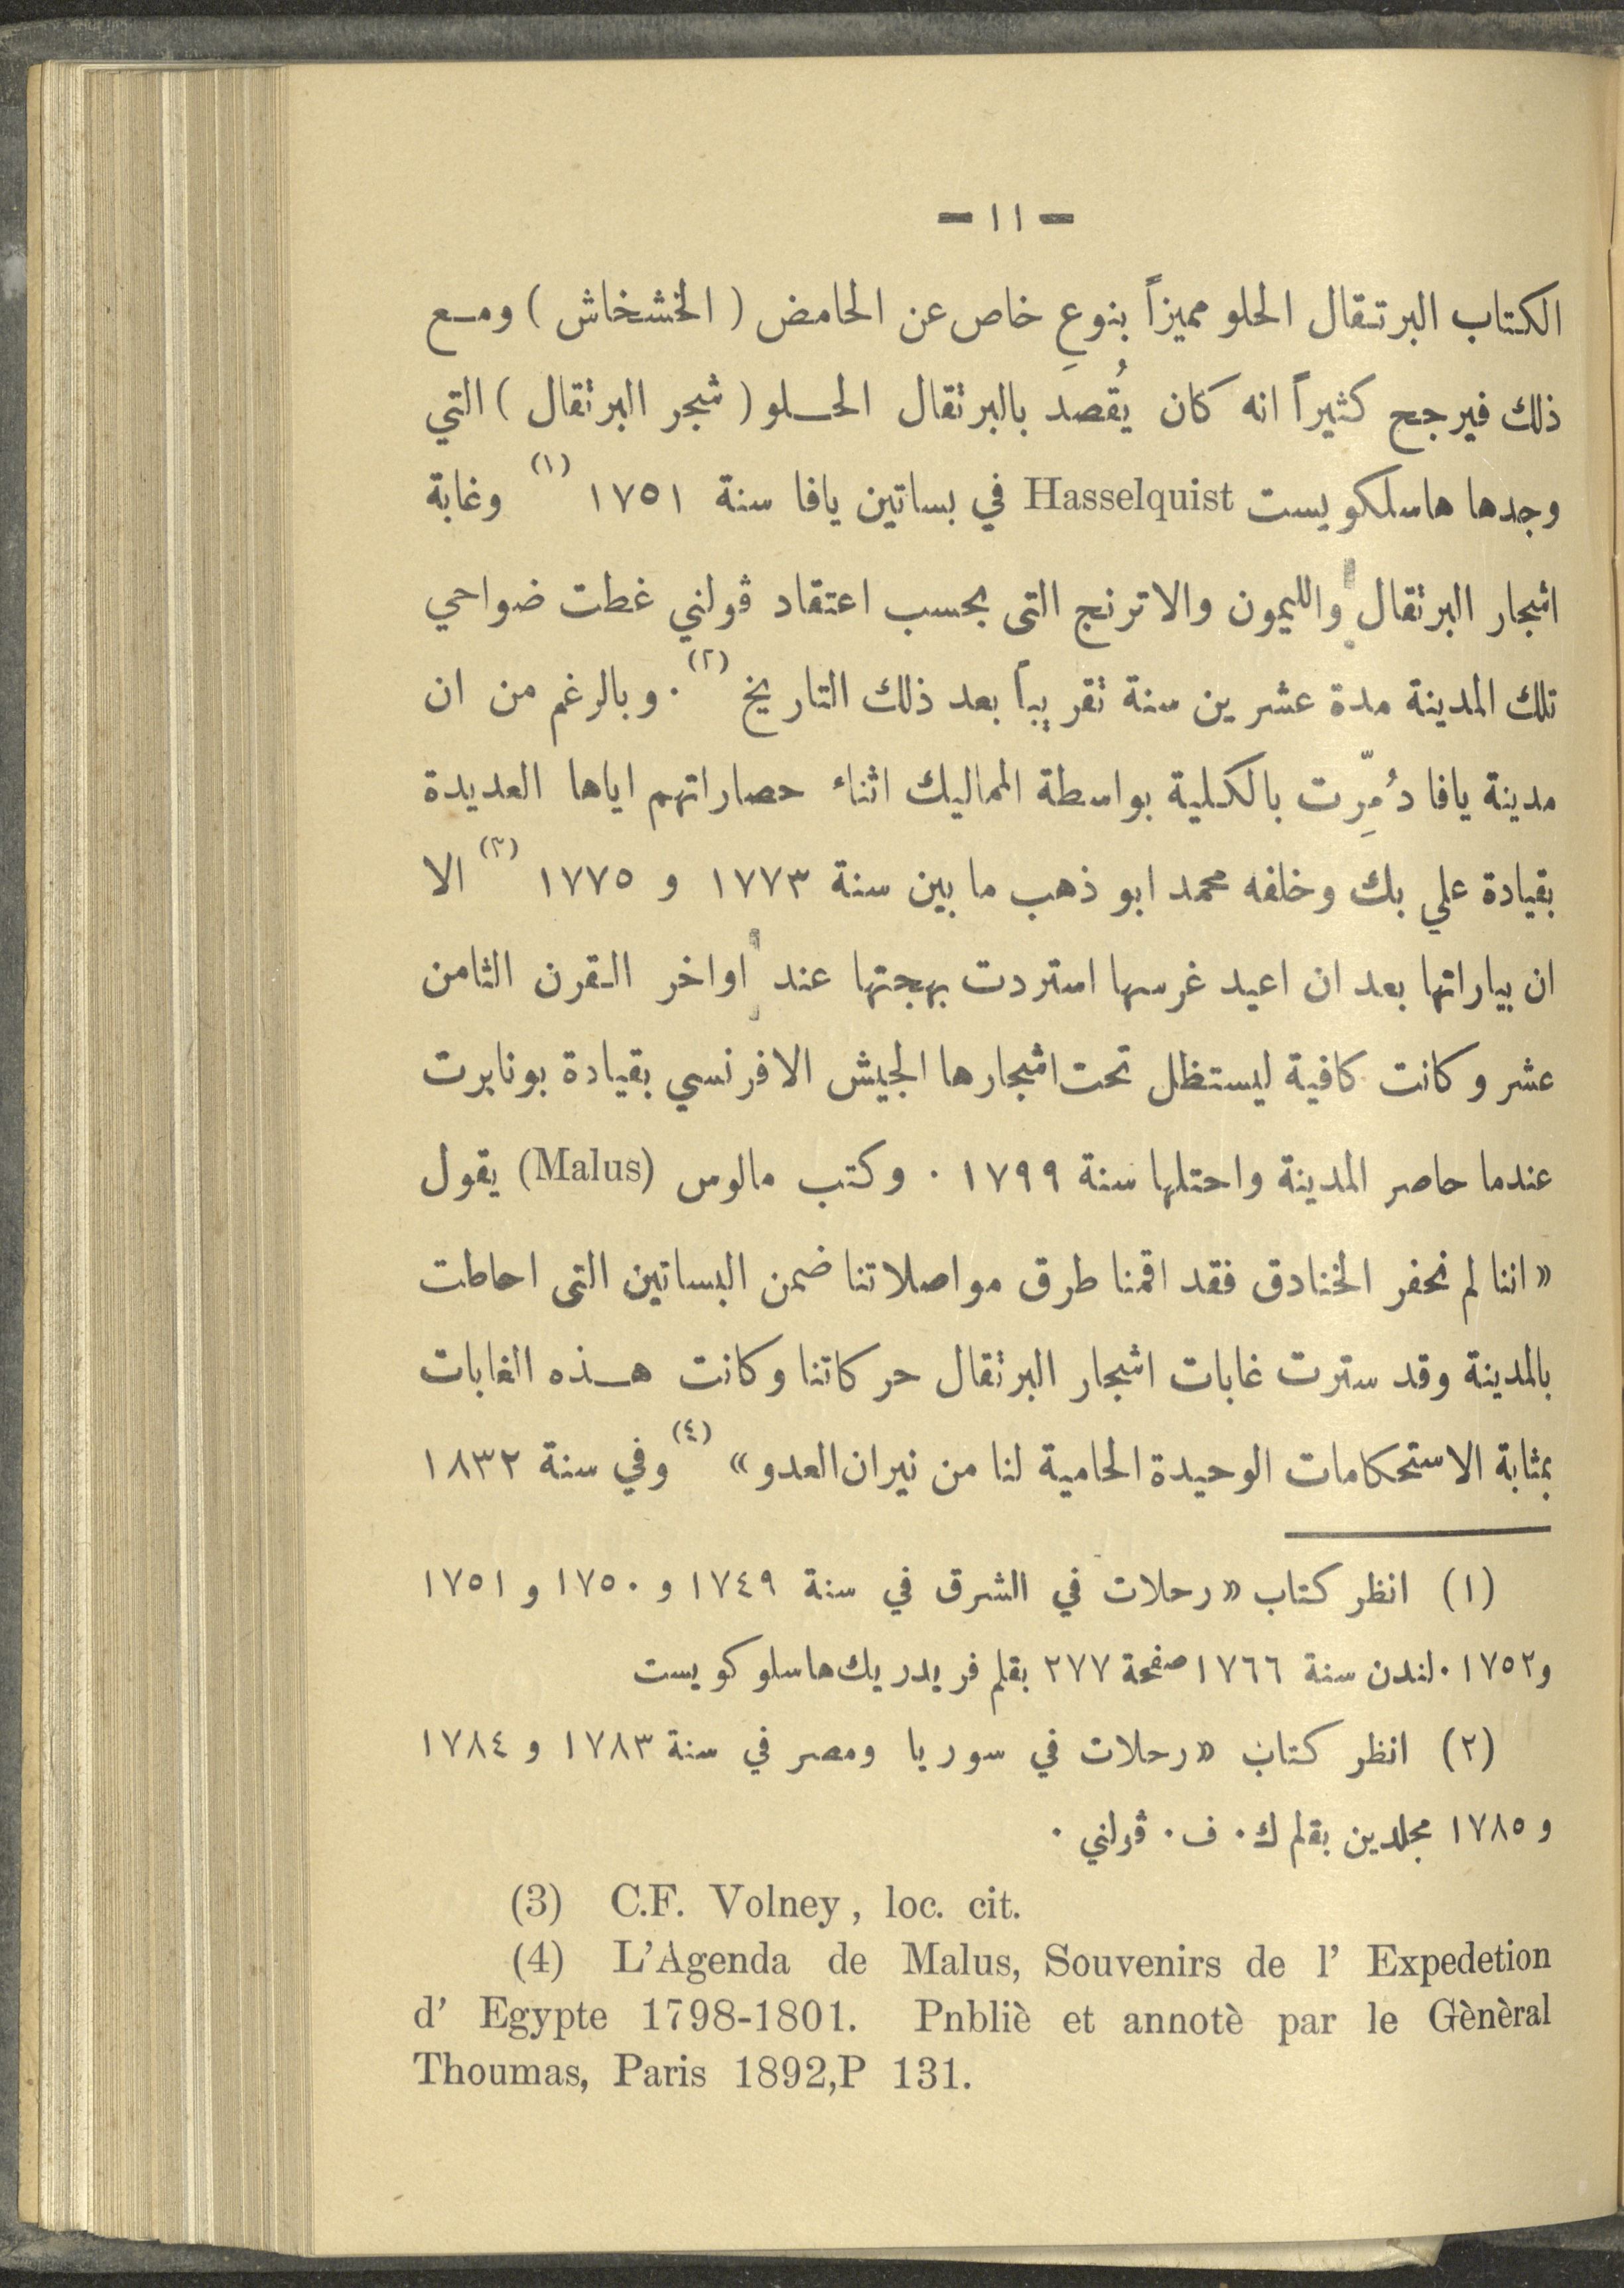 - ١١ -
الكتاب البرتقال الحلو مميزاً بنوعِ خاص عن الحامض ( الخشخاش ) ومع
ذلك فيرجح كثيراً انه كان يُقصد بالبرتقال الحلو ( شجر البرتقال ) التي
وجدها هاسلكويست Hasselquist في بساتين يافا سنة ١٧٥١ (١) وغابة
اشجار البرتقال والليمون والاترنج التى بحسب اعتقاد ڤولني غطت ضواحي
تلك المدينة مدة عشرين سنة تقريباً بعد ذلك التاريخ (٢) . وبالرغم من ان
مدينة يافا دُمِّرت بالكلية بواسطة المماليك اثناء حصاراتهم اياها العديدة
بقيادة علي بك وخلفه محمد ابو ذهب ما بين سنة ١٧٧٣ و ١٧٧٥ (٣) الا
ان بياراتها بعد ان اعيد غرسها استردت بهجتها عند اواخر القرن الثامن
عشر وكانت كافية ليستظل تحت اشجارها الجيش الافرنسي بقيادة بونابرت
عندما حاصر المدينة واحتلها سنة ١٧٩٩ . وكتب مالوس (Malus) يقول
« اننا لم نحفر الخنادق فقد اقمنا طرق مواصلاتنا ضمن البساتين التى احاطت
بالمدينة وقد سترت غابات اشجار البرتقال حركاتنا وكانت هذه الغابات
بمثابة الاستحكامات الوحيدة الحامية لنا من نيران العدو » (٤) وفي سنة ١٨٣٢
(١) انظر كتاب « رحلات في الشرق في سنة ١٧٤٩ و ١٧٥٠ و ١٧٥١
و١٧٥٢ . لندن سنة ١٧٦٦ صفحة ٢٧٧ بقلم فريدريك هاسلوكويست
(٢) انظر كتاب « رحلات في سوريا ومصر في سنة ١٧٨٣ و ١٧٨٤
و ١٧٨٥ مجلدين بقلم ك . ف . ڤولني .
(3) C.F. Volney, loc. cit.
(4) L'Agenda de Malus, Souvenirs de l' Expedetion
d' Egypte 1798-1801. Pnbliè et annotè par le Gènèral
Thoumas, Paris 1892,P 131.